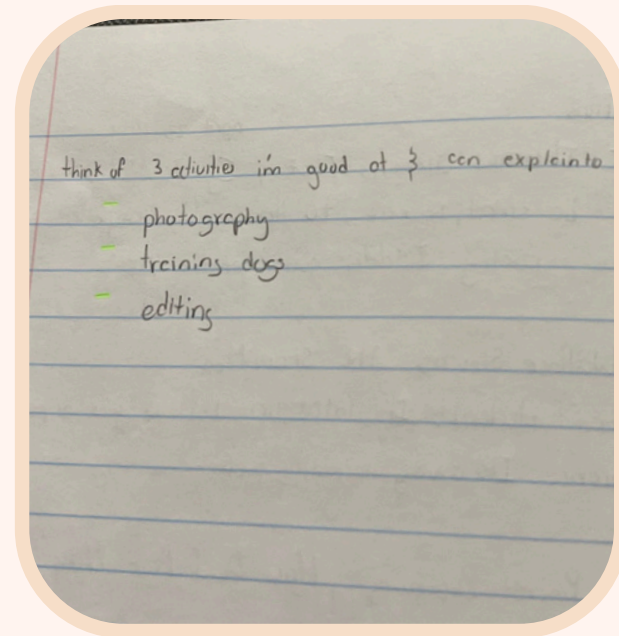 think of 3 activities im good at & can explain to
- photography
- training dogs
- editing